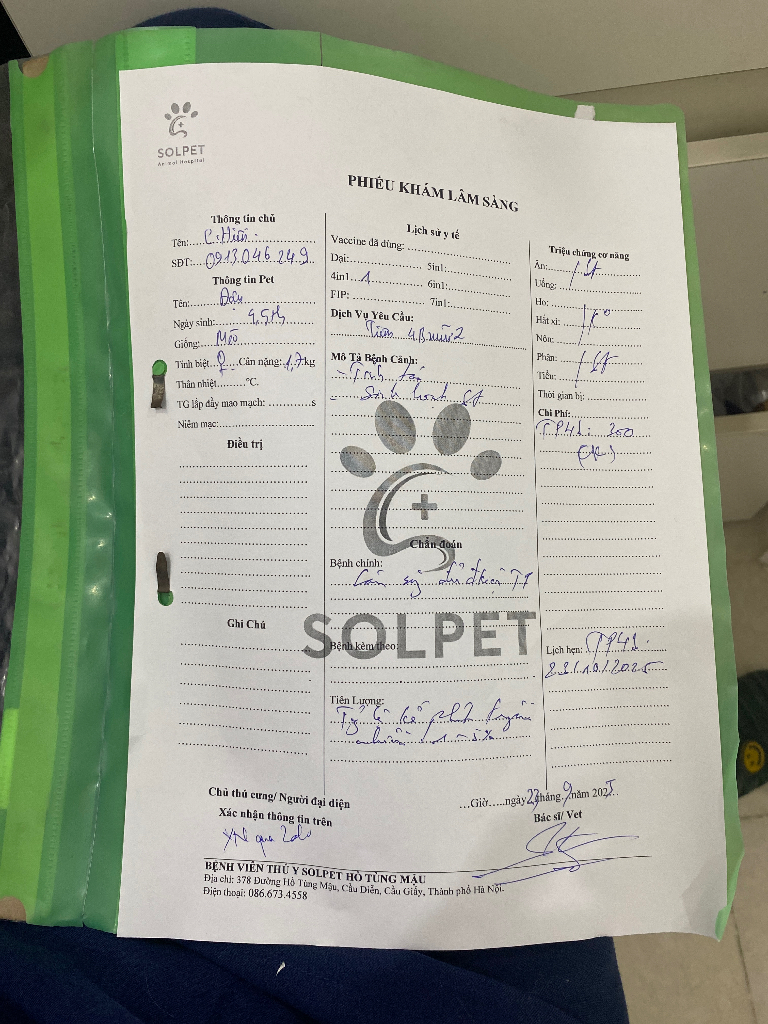 SOLPET
Animal Hospital
PHIẾU KHÁM LÂM SÀNG
Thông tin chủ
Tên: C. Hiền
SĐT: 0913.046.249
Thông tin Pet
Tên: Đậu
Ngày sinh: 9,5th
Giống: Mèo
Tính biệt ♀ Cân nặng: 1,7kg
Thân nhiệt.........°C.
TG lấp đầy mao mạch: ............s
Niêm mạc:
Điều trị
Ghi Chú
Lịch sử y tế
Vaccine đã dùng:
Dại: 5in1:
4in1 1 6in1:
FIP: 7in1:
Dịch Vụ Yêu Cầu:
Tiêm 4B mũi 2
Mô Tả Bệnh Cảnh:
- Tỉnh táo
- Sinh hoạt
Chẩn đoán
Bệnh chính:
đủ đkiện
SOLPET
Bệnh kèm theo:
Tiên Lượng:
Tỷ lệ phản
1-5%
Triệu chứng cơ năng
Ăn:
Uống:
Ho:
Hắt xì:
Nôn:
Phân:
Tiểu:
Thời gian bị:
Chi Phí:
TP41: 200
Lịch hẹn: TP41.
/10/2025
Chủ thú cưng/ Người đại diện
Xác nhận thông tin trên
XN qua Zalo
...Giờ.....ngày 23 tháng 9 năm 2025
Bác sĩ/ Vet
BỆNH VIỆN THÚ Y SOLPET HỒ TÙNG MẬU
Địa chỉ: 378 Đường Hồ Tùng Mậu, Cầu Diễn, Cầu Giấy, Thành phố Hà Nội.
Điện thoại: 086.673.4558